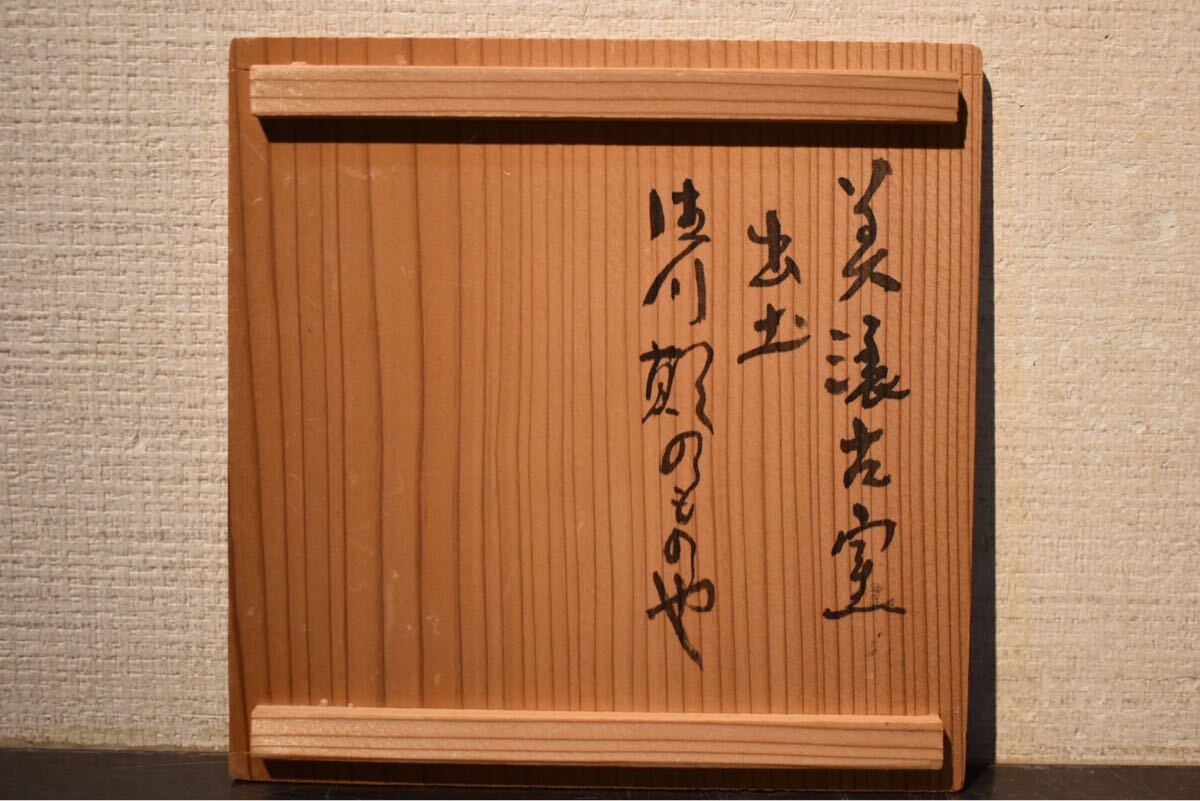 美濃古窯
出土
徳川期のものや